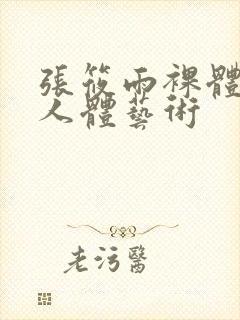 張筱雨裸體
人體藝術
老污醫